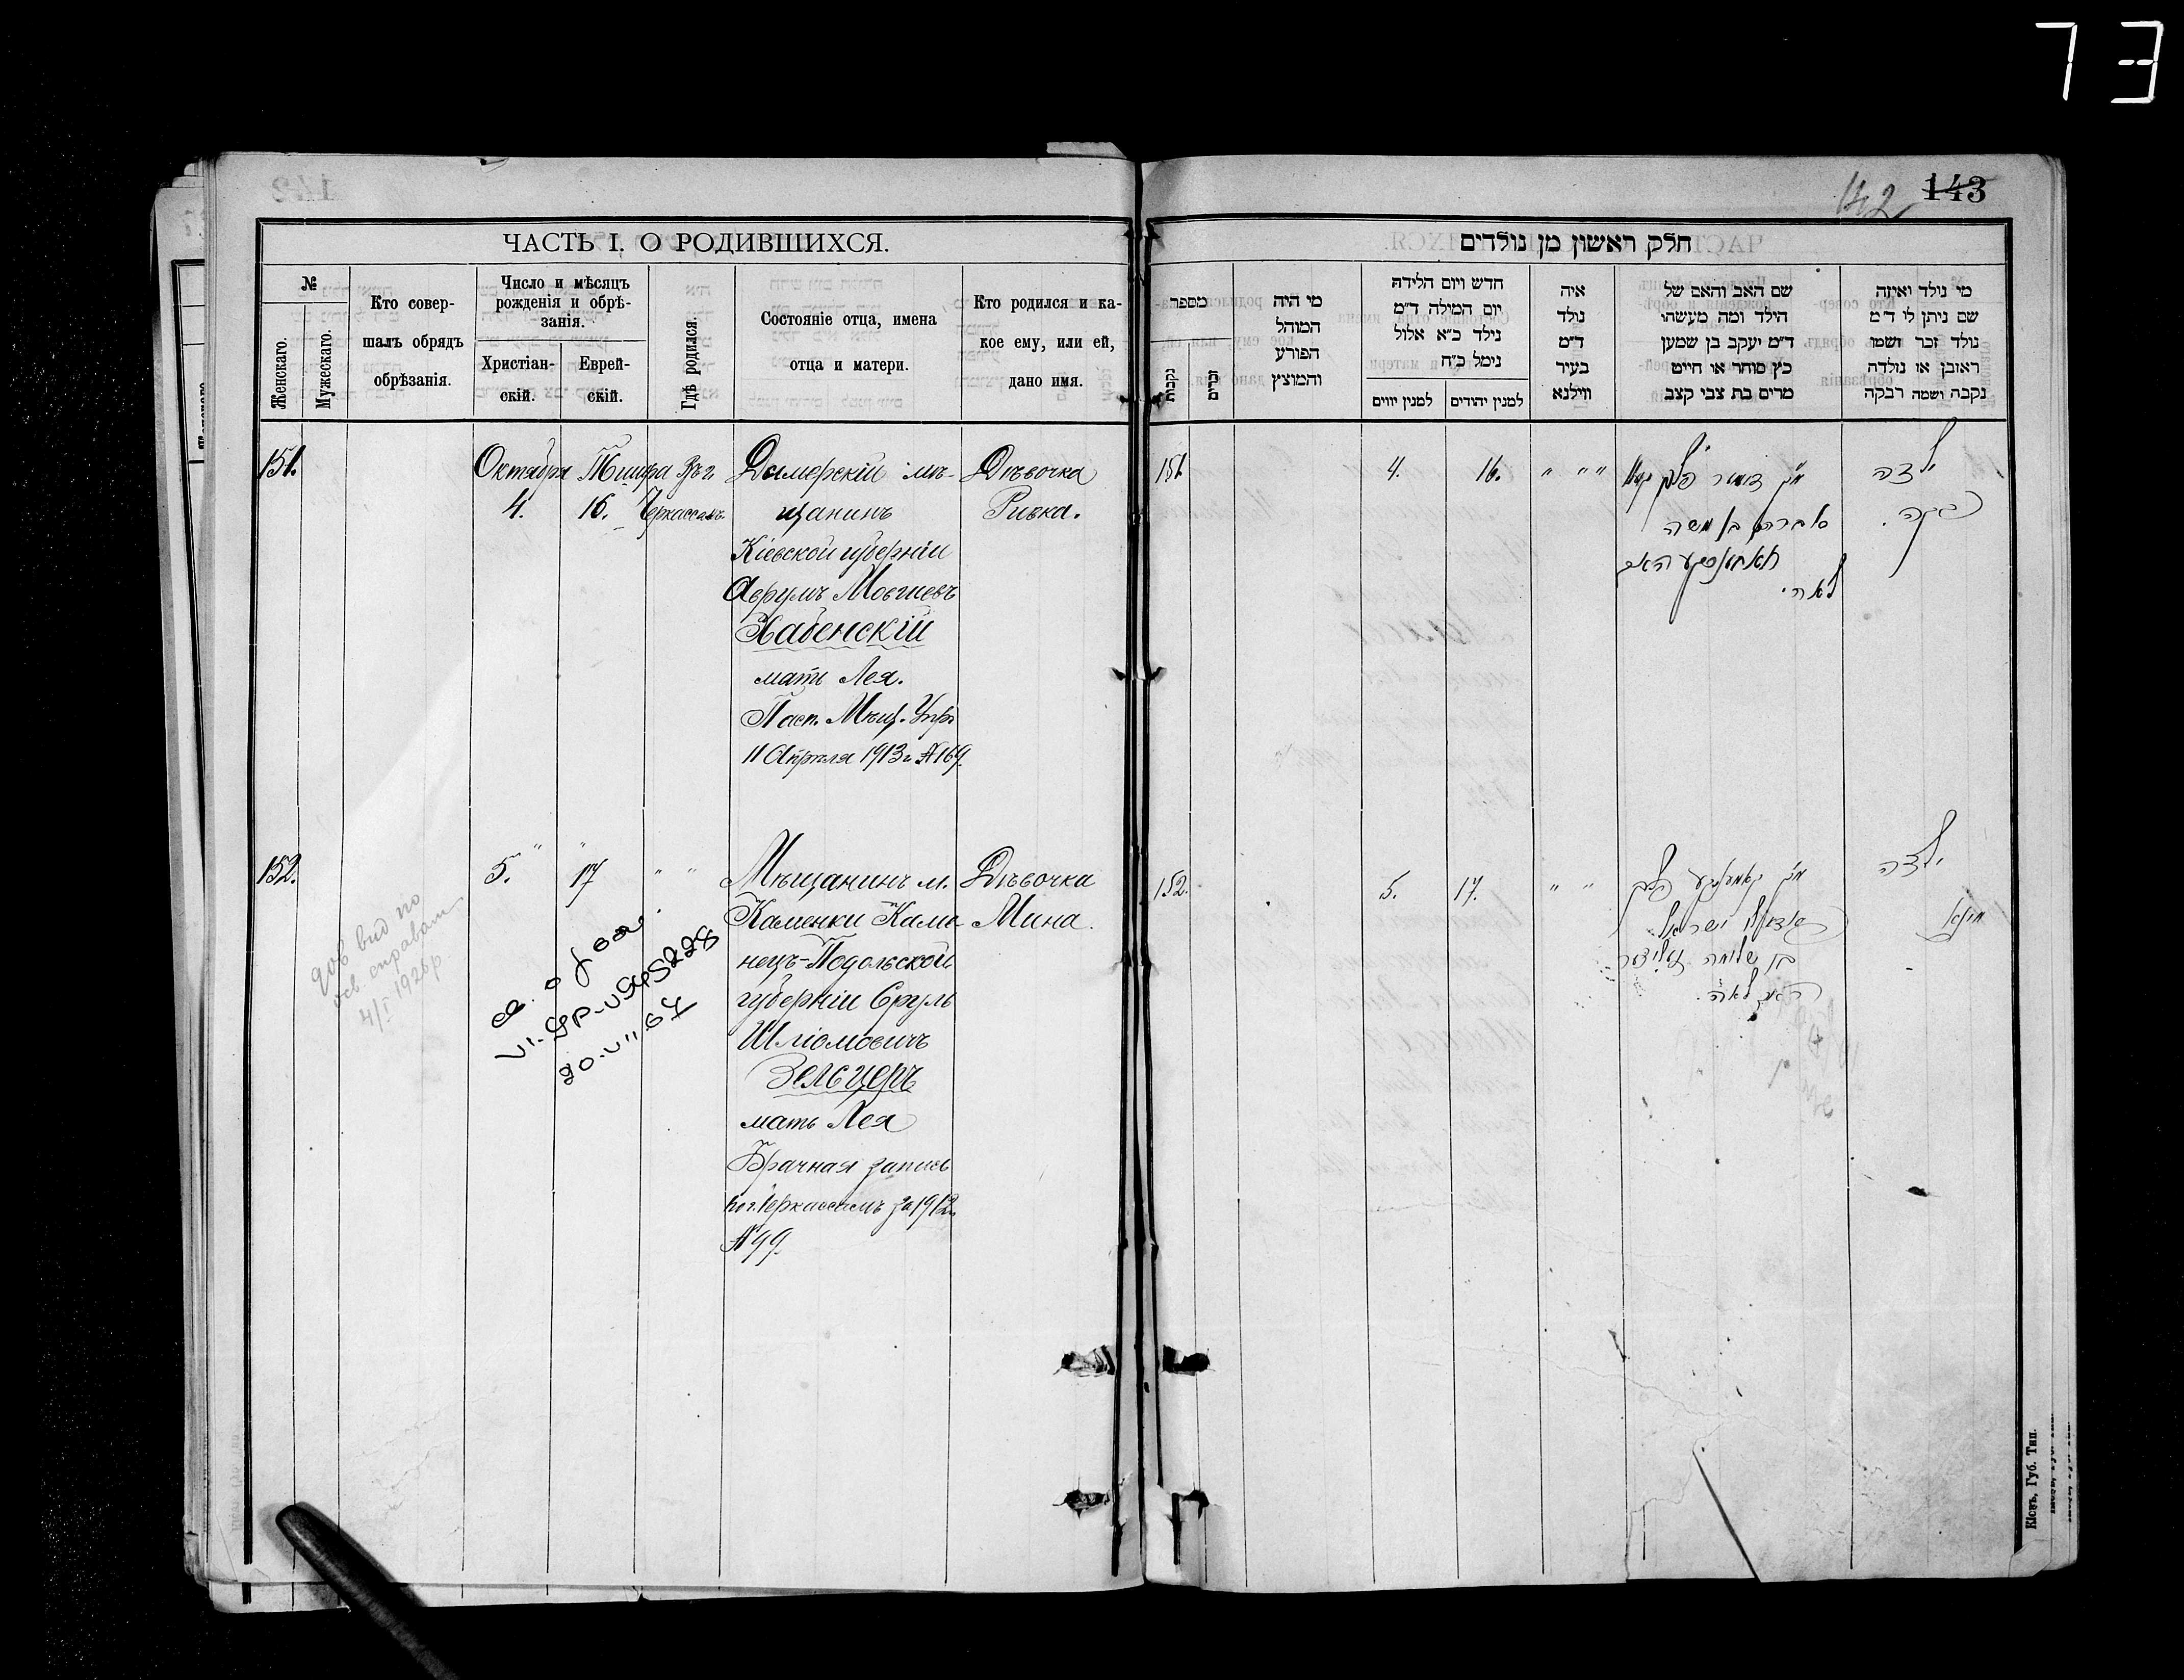 73
142
143
ЧАСТЬ I. О РОДИВШИХСЯ.
№
Женскаго.
Мужескаго.
Кто совер-
шалъ обрядъ
обрѣзанія.
Число и мѣсяцъ
рожденія и обрѣ-
занія.
Христіан-
скій.
Еврей-
скій.
Гдѣ родился.
Состояніе отца, имена
отца и матери.
Кто родился и ка-
кое ему, или ей,
дано имя.
151.
Октября Тишра Въ г.
4. 16. Черкассахъ.
Дымерскій мѣ-
щанинъ
Кіевской губерніи
Аврумъ Мовшевъ
Хабенскій
мать Лея.
Пасп. Мѣщ. Упр.
11 Апрѣля 1913 г. № 169.
Дѣвочка
Ривка.
152.
5. 17 " "
Мѣщанинъ м.
Каменки Каме-
нецъ-Подольской
губерніи Сруль
Шліомовичъ
Зельцеръ
мать Лея
Брачная запись
по г. Черкассамъ за 1912 г.
№ 99.
Дѣвочка
Мина.
4/I 1926 р.
חלק ראשון מן נולדים
מספר
נקבות
זכרים
מי היה
המוהל
הפורע
והמוצץ
חדש ויום הלידה
יום המילה ד״מ
נילד כ״א אלול
נימל כ״ח
למנין יווים
למנין יהודים
איה
נולד
ד״מ
בעיר
ווילנא
שם האב והאם של
הילד ומה מעשהו
ד״מ יעקב בן שמעון
כץ סוחר או חייט
מרים בת צבי קצב
מי נולד ואיזה
שם ניתן לו ד״מ
נולד זכר ושמו
ראובן או נולדה
נקבה ושמה רבקה
151 4. 16. " " "
אברהם בן משה
לאה.
ילדה
רבקה.
152. 5. 17. " "
ישראל
בן שלמה זעלצער
האם לאה.
ילדה
מינא
Кіевъ, Губ. Тип.